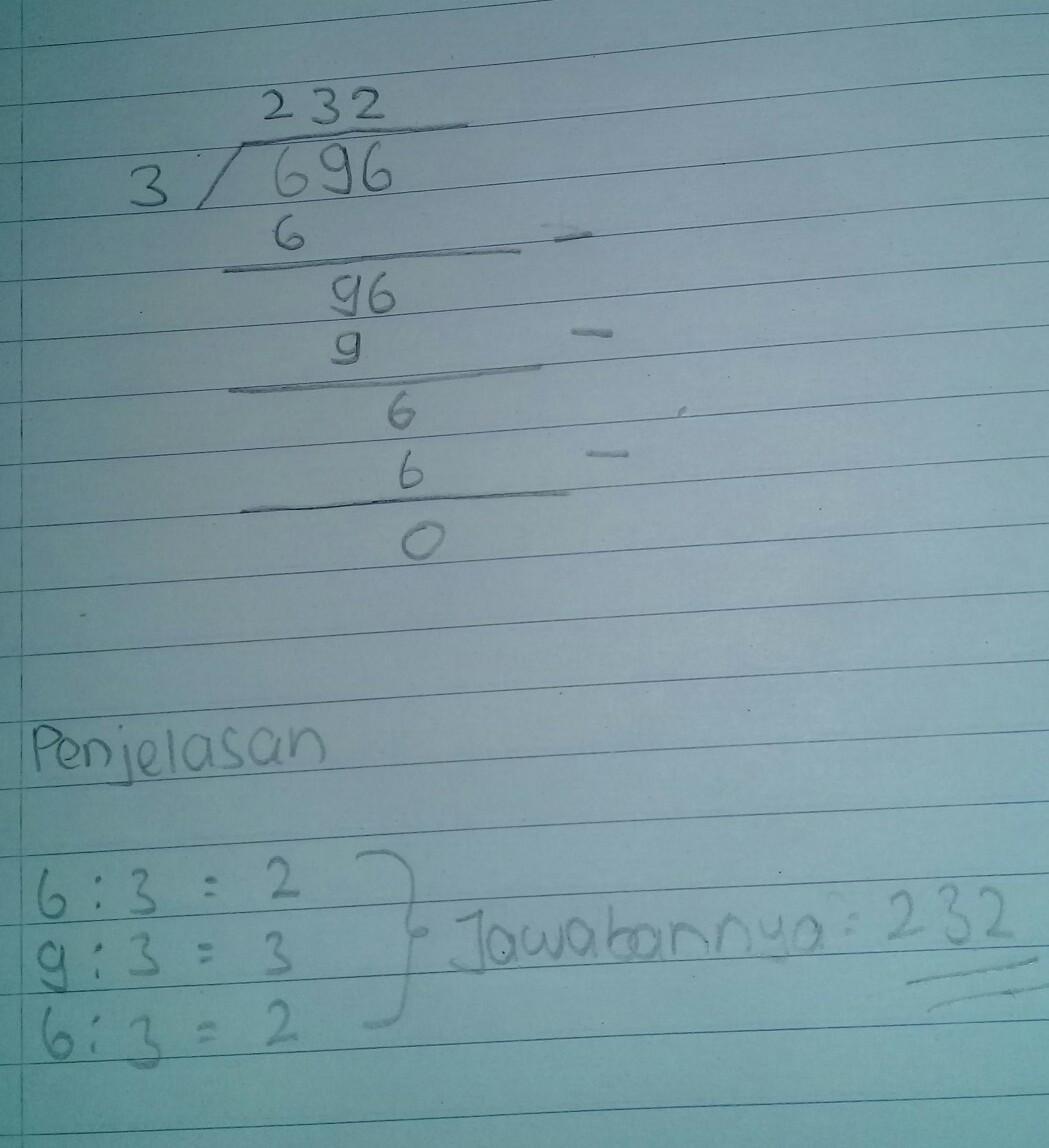 232
3 / 696
6 -
96
9 -
6
6 -
0
Penjelasan
6 : 3 = 2
9 : 3 = 3
6 : 3 = 2
} Jawabannya : 232